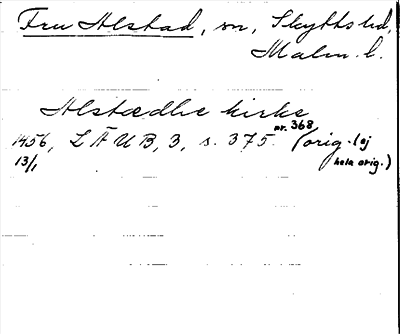 Fru Alstad, sn, Skytts hd,
Malm. l.
Alstædhe kirke
1456, LÄUB, 3, s. 375. nr. 368 (orig. (ej
13/1 hela orig.)